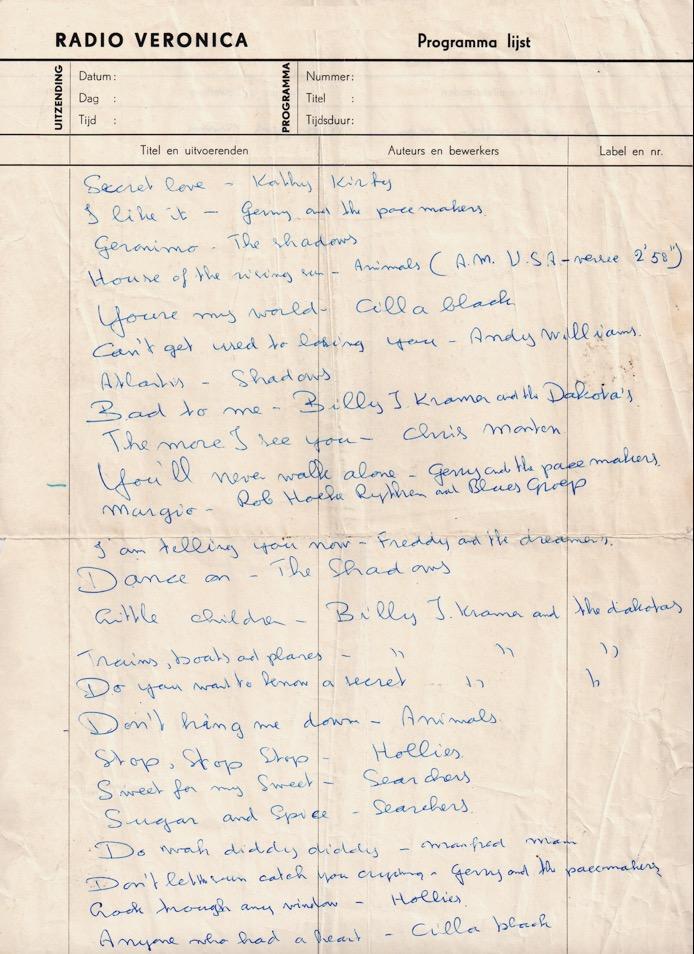 RADIO VERONICA Programma lijst
UITZENDING Datum : PROGRAMMA Nummer:
Dag : Titel :
Tijd : Tijdsduur:
Titel en uitvoerenden Auteurs en bewerkers Label en nr.
Secret love - Kathy Kirby
I like it - Gerry and the pacemakers.
Geronimo - The shadows
House of the rising sun - Animals (A.M. U.S.A - versie 2'58")
Youre my world - Cilla black
Can't get used to losing you - Andy Williams.
Atlantis - Shadows
Bad to me - Billy J. Kramer and the Dakota's
The more I see you - Chris Monten
You'll never walk alone - Gerry and the pacemakers.
Margio - Rob Hoeke Rythm and Blues Groep
I am telling you now - Freddy and the dreamers.
Dance on - The Shadows
Little children - Billy J. Kramer and the dakotas
Trains, boats and planes - " " "
Do you want to know a secret " "
Don't bring me down - Animals.
Stop, Stop Stop - Hollies.
Sweet for my Sweet - Searchers
Sugar and Spice - Searchers.
Do wah diddy diddy - manfred man
Don't let the sun catch you crying - Gerry and the pacemakers
Look trough any window - Hollies.
Anyone who had a heart - Cilla black